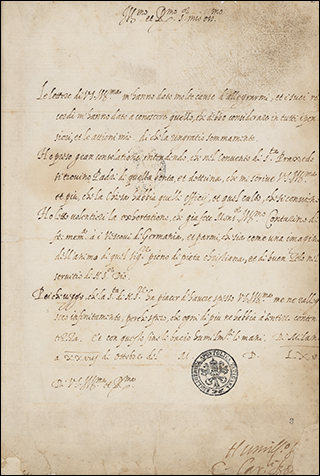 Ill.mo et R.mo S.r mio oss.mo
Le lettere di V.S. Ill.ma m'hanno dato molte cause d'allegrarmi, et i suoi ri
cordi m'hanno dato a conoscere quello, che debbo considerare in tutti i pen
sieri, et le attioni mie. di che la ringratio sommamente.
Ho preso gran consolatione intendendo, che nel Convento di S.ta Prassede
si trovino Padri di quella bontà, et dottrina, che mi scrive V.S. Ill.ma
et più, che la Chiesa habbia quelli officij, et quel culto, che si conviene.
Ho letto volentieri la exhortatione, che già fece Mons.r Ill.mo Contarino di
fe. mem. a i Vescovi di Germania, et parmi, che sia come una imagine
dell'anima di quel Sig.re pieno di pietà christiana, et di buon zelo nel
servitio di N.S. Dio.
che la S.tà di N.S.re ha piacer d'havere spesso V.S. Ill.ma me ne ralle
gro infinitamente, perche spero, che ogni dì più ne habbia a sentire conten
tezza. Et con questo fine le bacio humilm.te le mani. Di Milano
a XXVII di ottobre del M. D. LXV
D. V.S. Ill.ma et R.ma
Humiliss.o